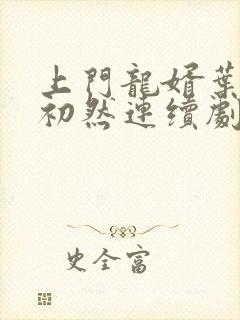 上門龍婿葉
初然連續劇
史全富